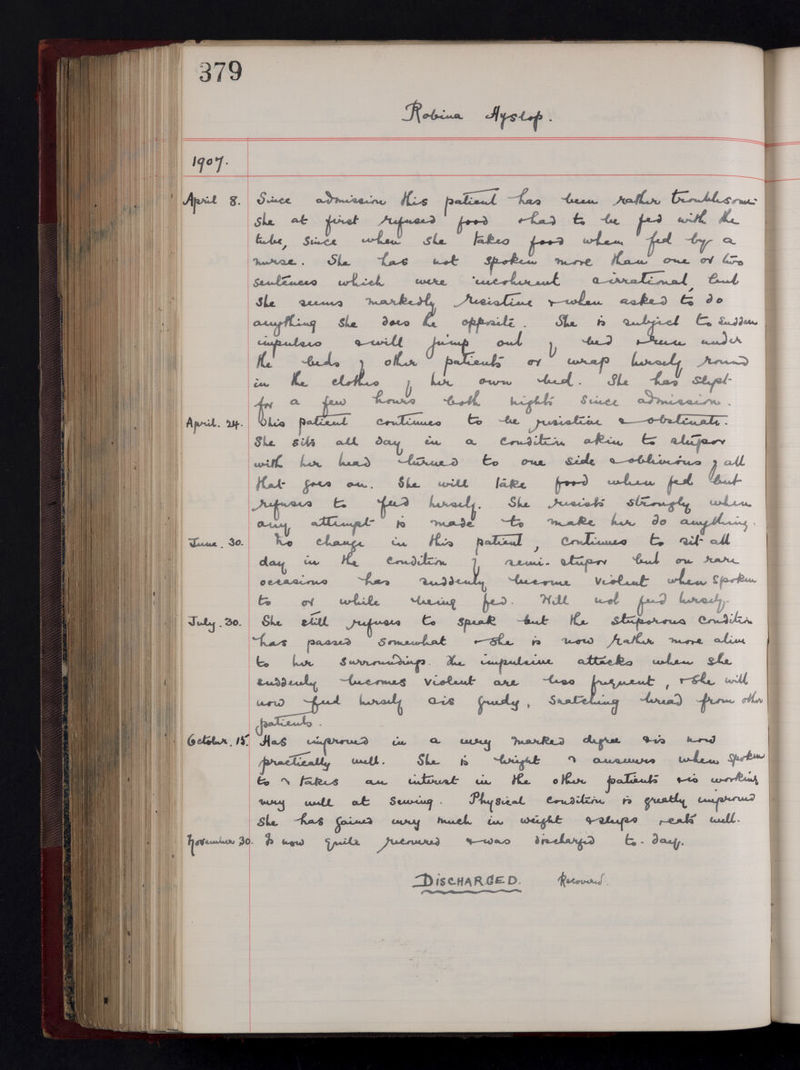 379
Robina Hyslop.
1907.
April 8. Since admission this patient has been rather troublesome
She at first refused food & had to be fed with the
tube, since when she takes food when fed by a
nurse. She has not spoken more than one or two
sentences which were incoherent & irrational, but
she seems markedly resistive & when asked to do
anything she does the opposite. She is subject to sudden
impulses & will jump out of bed & run under
the beds of other patients or wrap herself round
in the clothes of her own bed. She has slept
for a few hours both nights since admission.
April. 24. This patient continues to be resistive & obstinate.
She sits all day in a condition akin to stupor
with her head turned to one side & oblivious of all
that goes on. She will take food when fed but
refuses to feed herself. She resists strongly when
any attempt is made to make her do anything.
June. 30. No change in this patient, continues to sit all
day in the condition of semi-stupor but on rare
occasions has suddenly become violent when spoken
to or while being fed. Will not feed herself.
July. 30. She still refuses to speak but the stuporous condition
has passed somewhat & she is now rather more alive
to her surroundings. The impulsive attacks when she
suddenly becomes violent are less frequent, & she will
now feed herself & is greedy, snatching bread from other
patients.
October. 15. Has improved in a very marked degree & is now
practically well. She is bright & answers when spoken
to & takes an interest in the other patients & is working
very well at sewing. Physical condition is greatly improved
She has gained very much in weight & sleeps & eats well.
November 30. Is now quite recovered & was discharged to-day.
DISCHARGED. Recovered.